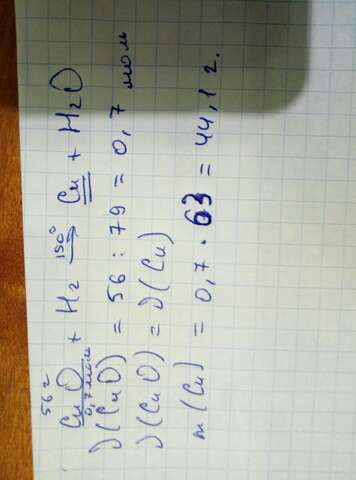 56 г
CuO + H₂ 150° ⟶ Cu + H₂O
0,7 моль
ν(CuO) = 56 : 79 = 0,7 моль
ν(CuO) = ν(Cu)
m(Cu) = 0,7 · 63 = 44,1 г.